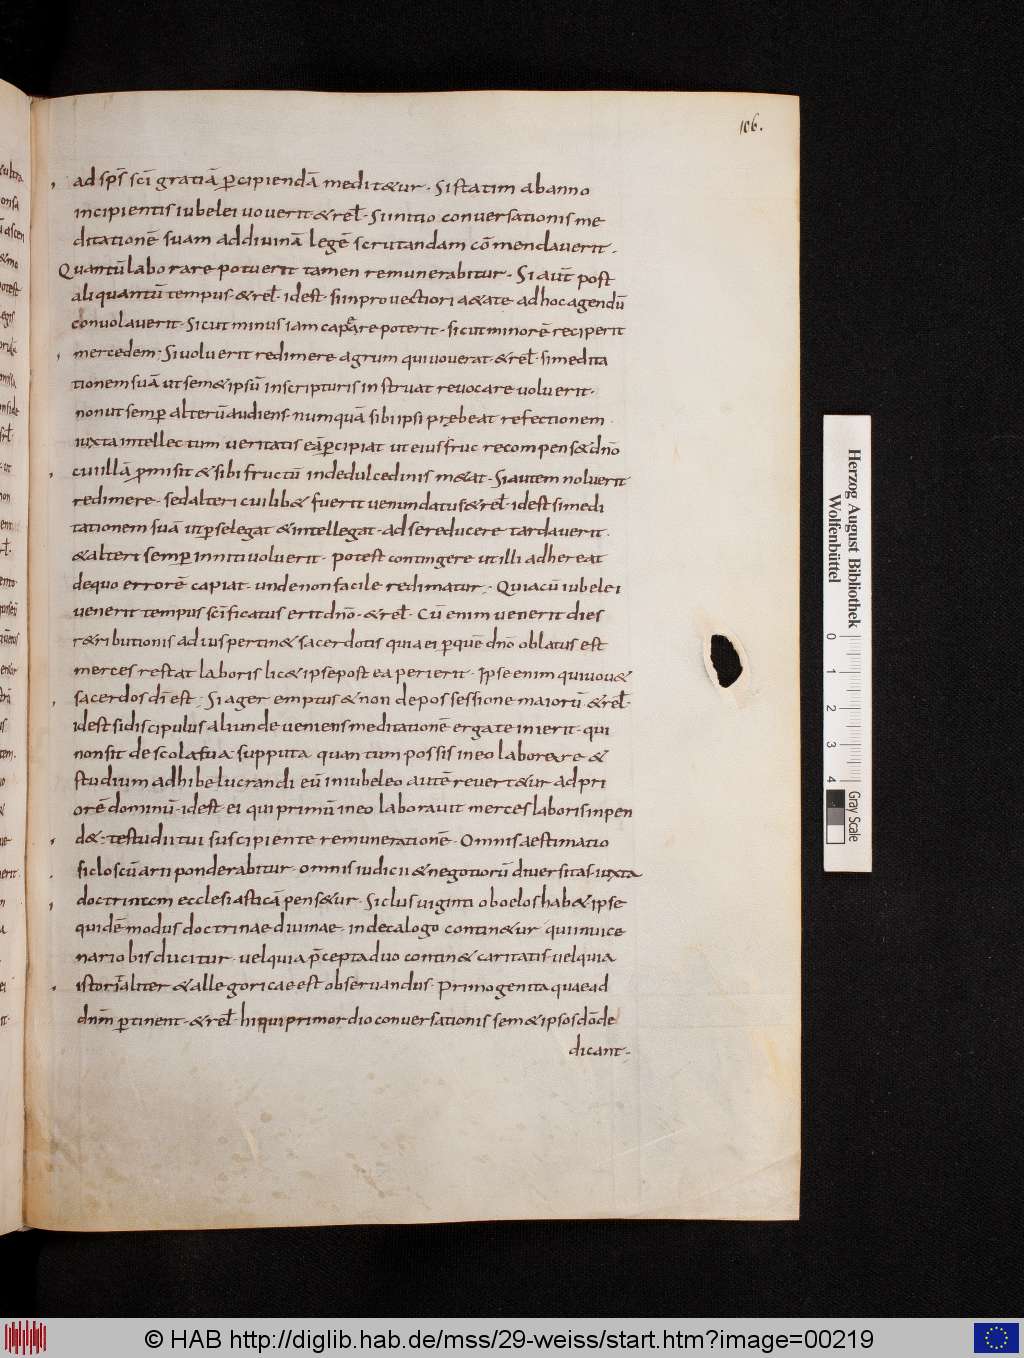 106.
ad sp̄s sc̄i gratiā p̱cipiendā medit&ur· Si statim ab anno
incipientis iubelei uouerit & rel̄· Si initio conuersationis me
ditationē suam ad diuinā legē scrutandam cōmendauerit·
Quantū laborare potuerit tamen remunerabitur· Si aut̄ post
aliquantū tempus· & rel̄· idest· si in prouectiori a&ate ad hoc agendū
conuolauerit· Sicut minus iam capere poterit· sicut minorē reciperit
mercedem; Si uoluerit redimere agrum qui uouerat· & rel̄· si medita
tionem suā ut sem& ipsū in scripturis instruat reuocare uoluerit·
non ut semp̱ alterū audiens· numquā sibi ipsi prębeat refectionem·
iuxta intellectum ueritatis eā p̱cipiat ut eius fruc recompens& dn̄o
cui illā p̱misit & sibi fructū inde dulcedinis m&at· Si autem noluerit
redimere· sed alteri cuilib& fuerit uenundatus & rel̄· idest si medi
tationem suā ut p̱ se legat & intellegat· ad se reducere tardauerit·
& alteri semp̱ inniti uoluerit· potest contingere ut illi adhereat
de quo errorē capiat· unde non facile redimatur· Quia cū iubelei
uenerit tempus sc̄ificatus erit dn̄o· & rel̄· Cū enim uenerit dies
r&ributionis ad ius pertin& sacerdotis quia ei p̱ quē dn̄o oblatus est
merces restat laboris lic& ipse postea perierit· Ipse enim qui uou&
sacerdos dī est; Si ager emptus & non de possessione maiorū & rel̄·
idest si discipulus aliunde ueniens meditationē erga te inierit· qui
non sit de scola tua supputa quantum possis in eo laborare &
studium adhibe lucrandi eū in iubeleo autē reuert&ur ad pri
orē dominū· idest ei qui primū in eo laborauit merces laboris inpen
d&· te studii tui suscipiente remunerationē· Omnis aestimatio
siclo scūarii ponderabitur· omnis iudicii & negotiorū diuersitas iuxta
doctrinam ecclesiasticā pens&ur· Siclus uiginti oboelos hab& ipse
quidē modus doctrinae diuinae· in decalogo contin&ur qui in uice
nario bis ducitur· uel quia p̄cepta duo contin& caritatis uel quia
istorialiter & allegoricae est obseruandus· Primogenita quae ad
dnm̄ p̱tinent· & rel̄· hi qui primordio conuersationis sem& ipsos dō de
dicant·
Herzog August Bibliothek
Wolfenbüttel
0 1 2 3 4
Gray Scale
© HAB http://diglib.hab.de/mss/29-weiss/start.htm?image=00219